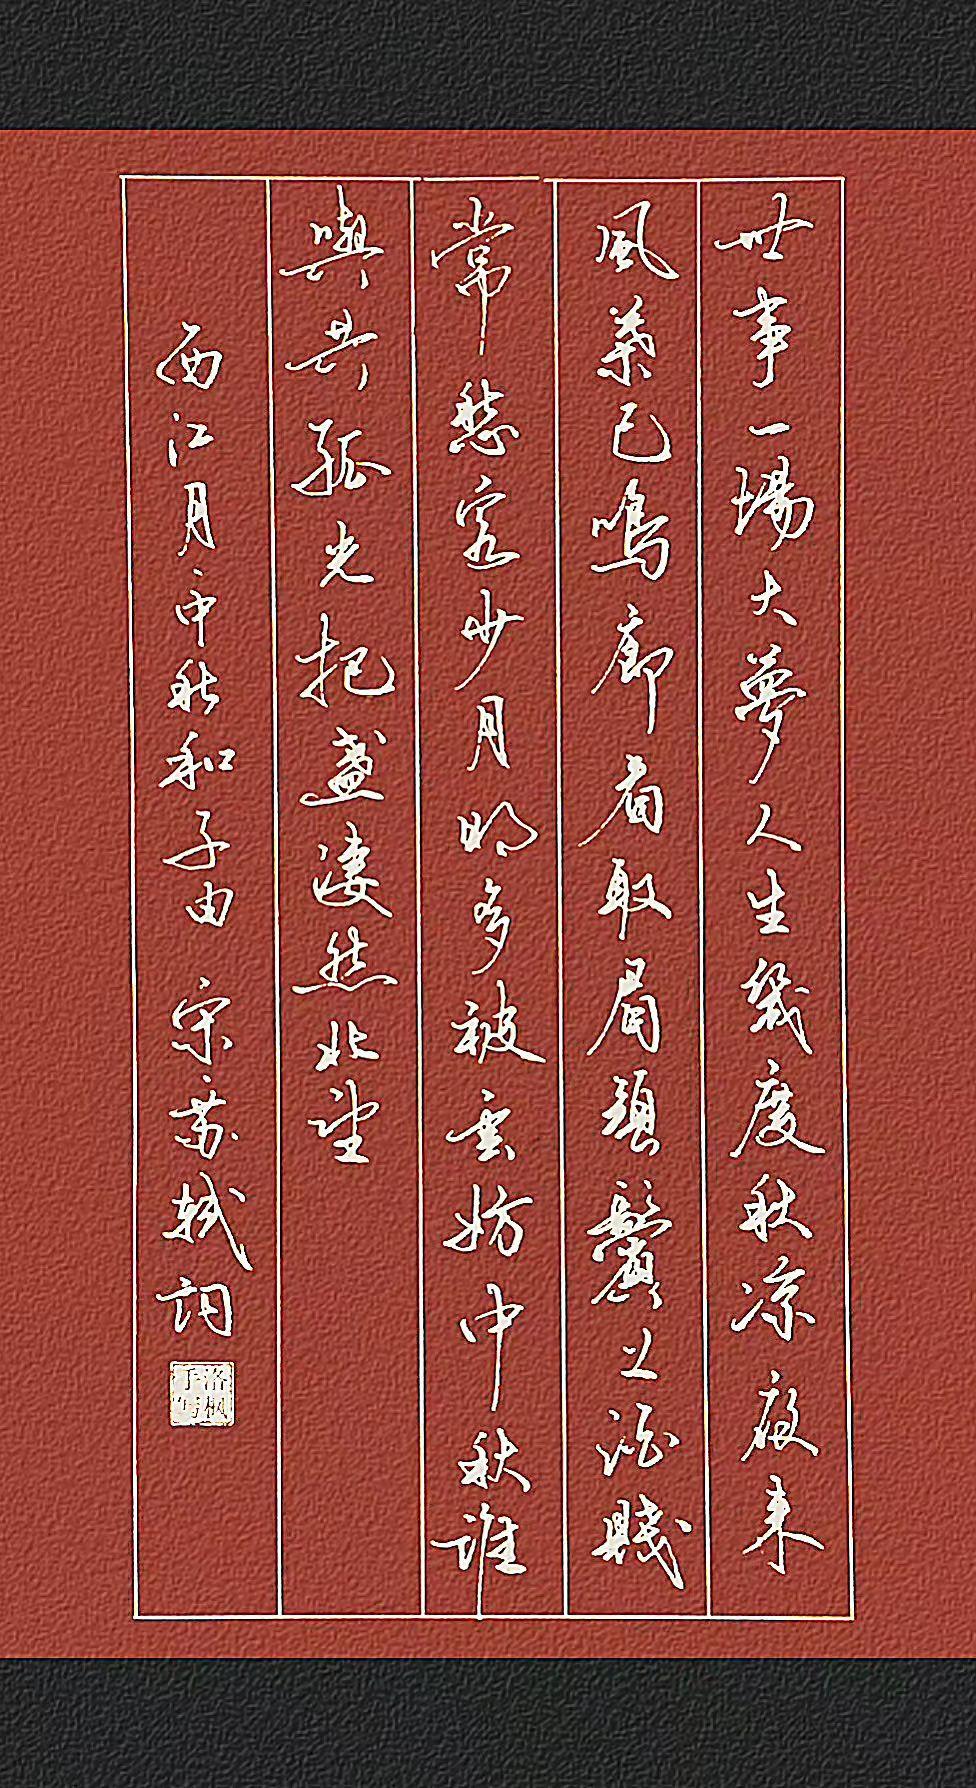 世事一場大夢人生幾度秋涼夜来
風葉已鳴廊看取眉頭鬢上酒賤
常愁客少月明多被雲妨中秋誰
與共孤光把盞淒然北望
西江月中秋和子由 宋苏軾詞
洛枫手写